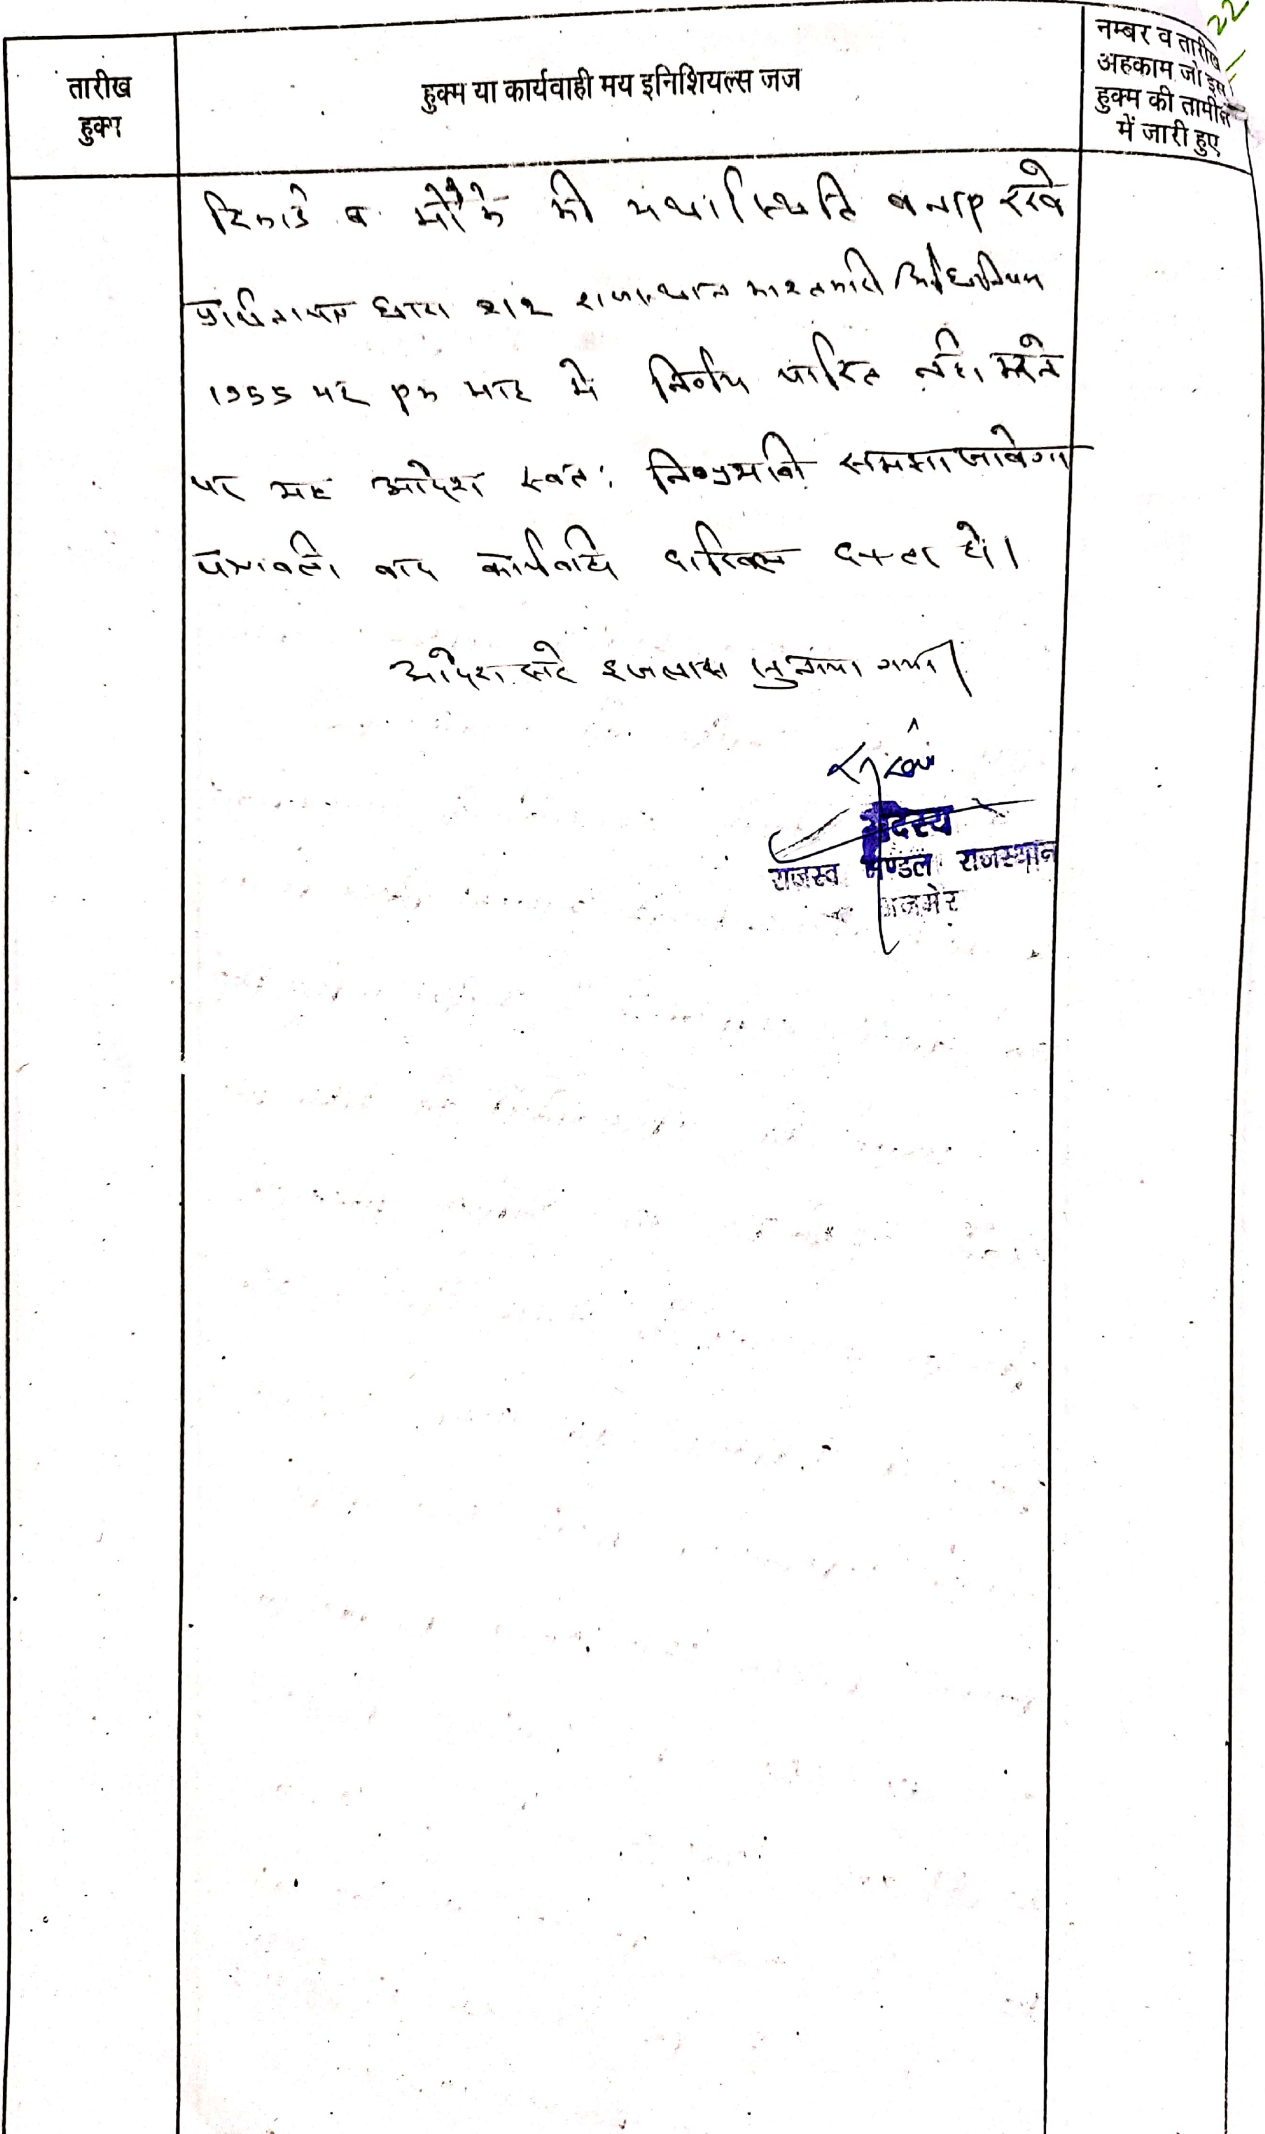 तारीख
हुक्म
हुक्म या कार्यवाही मय इनिशियल्स जज
नम्बर व तारीख
अहकाम जो इस
हुक्म की तामील
में जारी हुए
22
रिकार्ड व मौके की यथास्थिति बनाए रखे
प्रार्थनापत्र धारा 212 राजस्थान काश्तकारी अधिनियम
1955 पर एक माह मे निर्णय पारित नही करने
पर यह आदेश स्वतः निष्प्रभावी समझा जावेगा
पत्रावली बाद कार्यवाही दाखिल दफ्तर हो।
आदेश सरे इजलास सुनाया गया।
सदस्य
राजस्व मण्डल राजस्थान
अजमेर